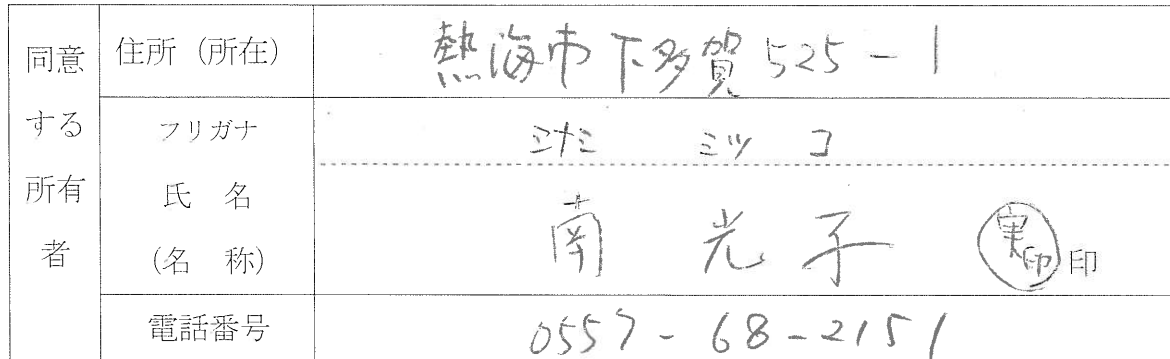 同意する所有者
住所（所在） 熱海市下多賀525-1
フリガナ ミナミ ミツコ
氏名（名称） 南 光子 実印 印
電話番号 0557-68-2151